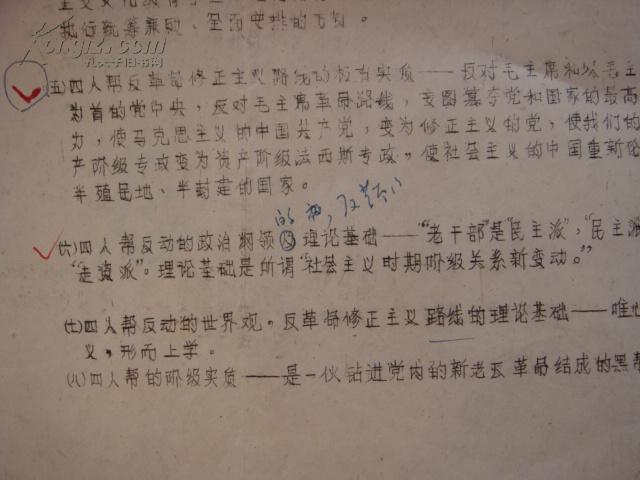 执行统筹兼顾、全面安排的飞向。
(五)四人帮反革命修正主义路线的极右实质——反对毛主席和以毛主
为首的党中央，反对毛主席革命路线，妄图篡夺党和国家的最高
力，使马克思主义的中国共产党，变为修正主义的党，使我们的
产阶级专政变为资产阶级法西斯专政，使社会主义的中国重新沦
半殖民地、半封建的国家。
(六)四人帮反动的政治纲领及理论基础——“老干部”是“民主派”，“民主派
“走资派”。理论基础是所谓“社会主义时期阶级关系新变动。”
(七)四人帮反动的世界观，反革命修正主义路线的理论基础——唯心
义，形而上学。
(八)四人帮的阶级实质——是一伙钻进党内的新老反革命结成的黑帮